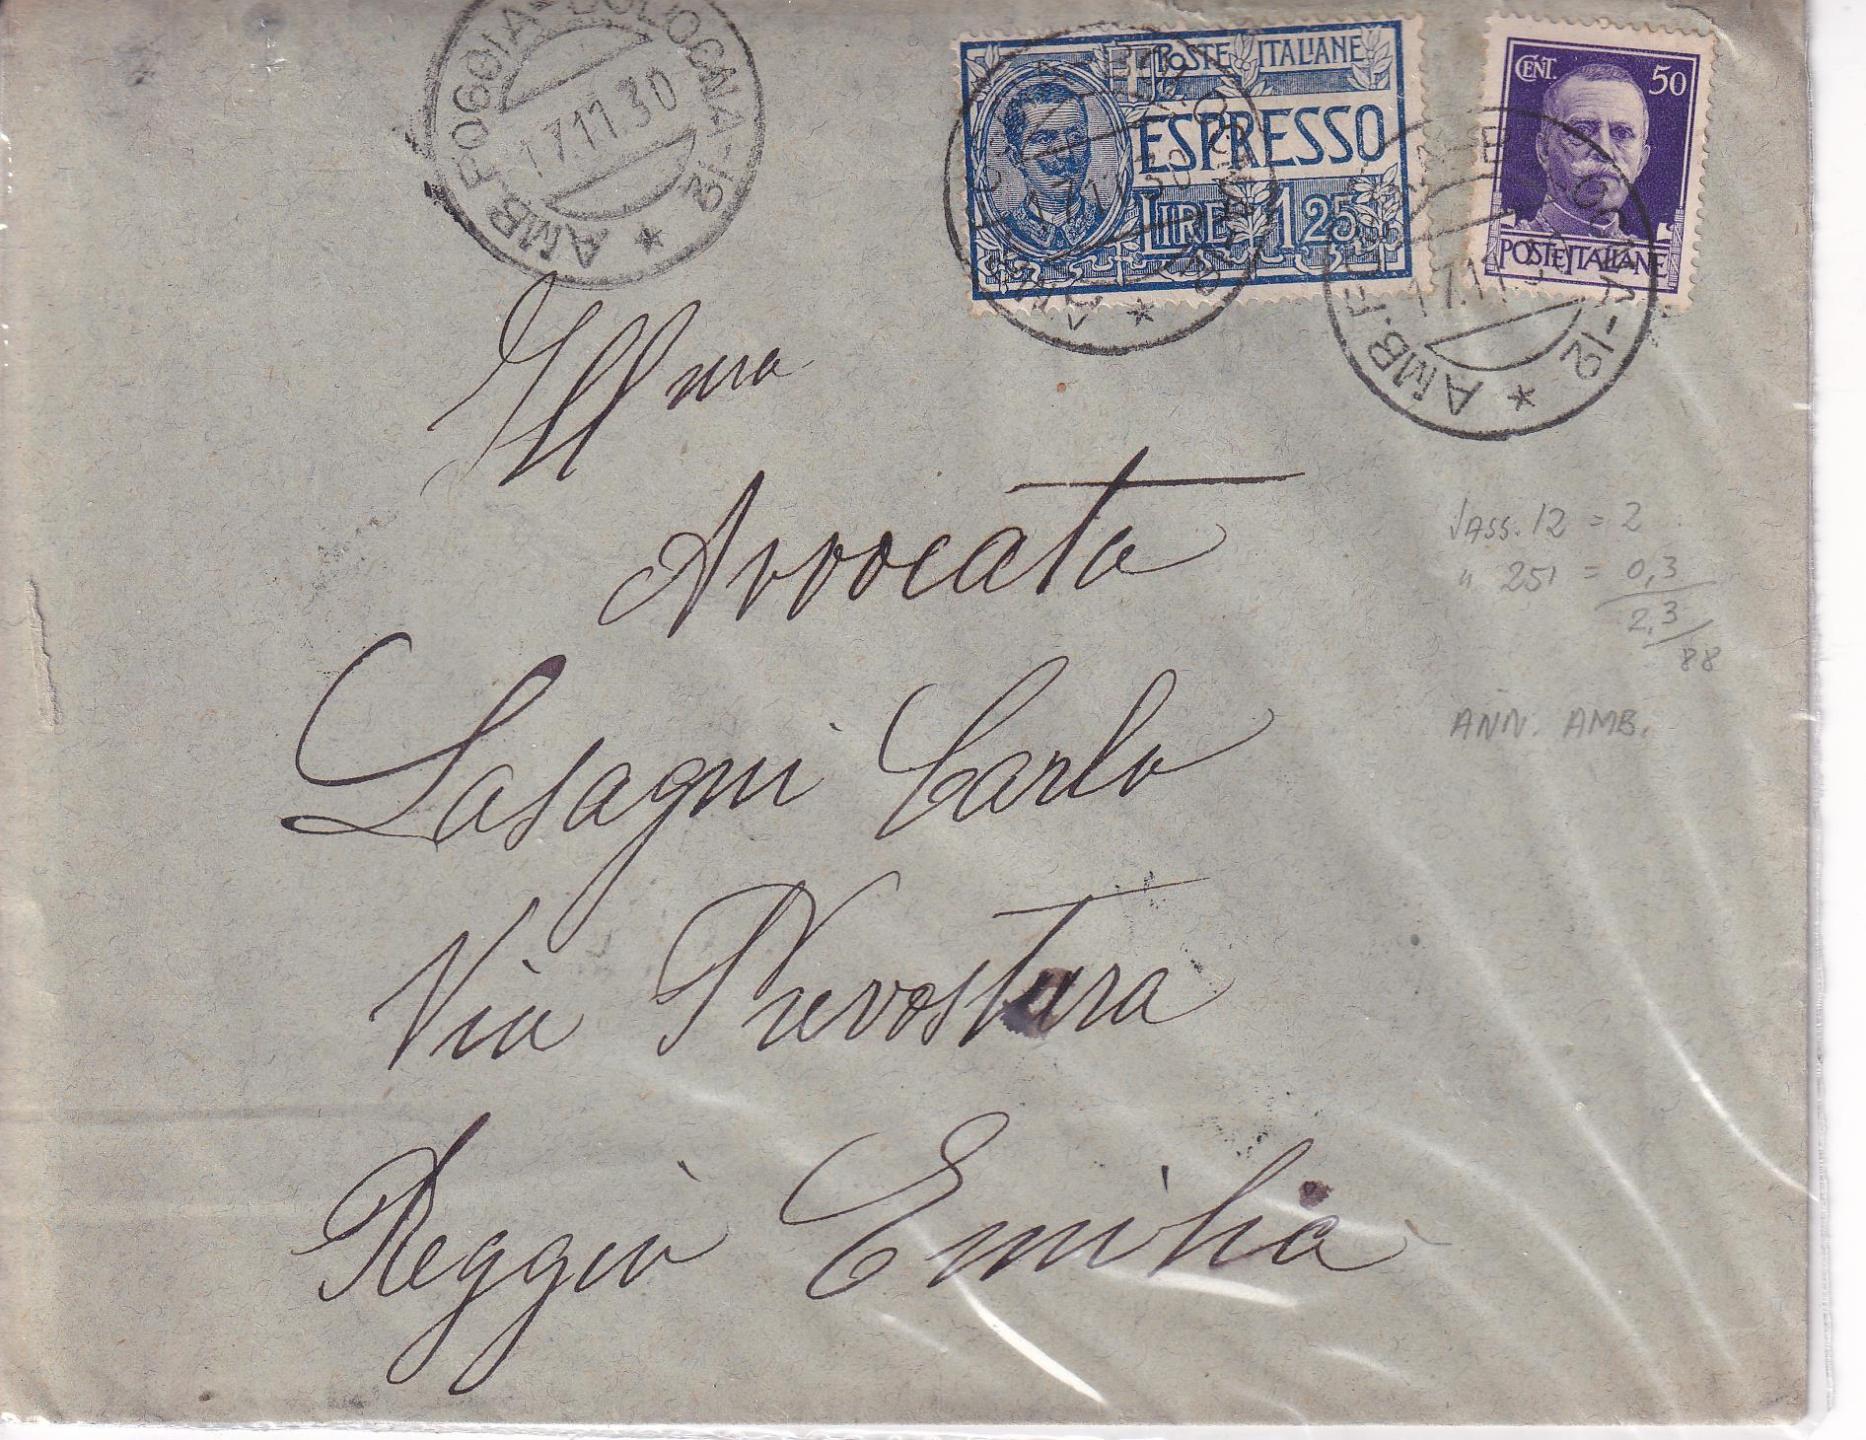 AMB. FOGGIA-BOLOGNA-12
17.11.30
POSTE ITALIANE
ESPRESSO
LIRE 1,25
CENT. 50
POSTE ITALIANE
17.11.30
AMB.
A-12
17.11.
Illma
Avvocata
Lasagni Carlo
Via Prevostura
Reggio Emilia
√ASS. 12 = 2
" 251 = 0,3
2,3
88
ANN. AMB.